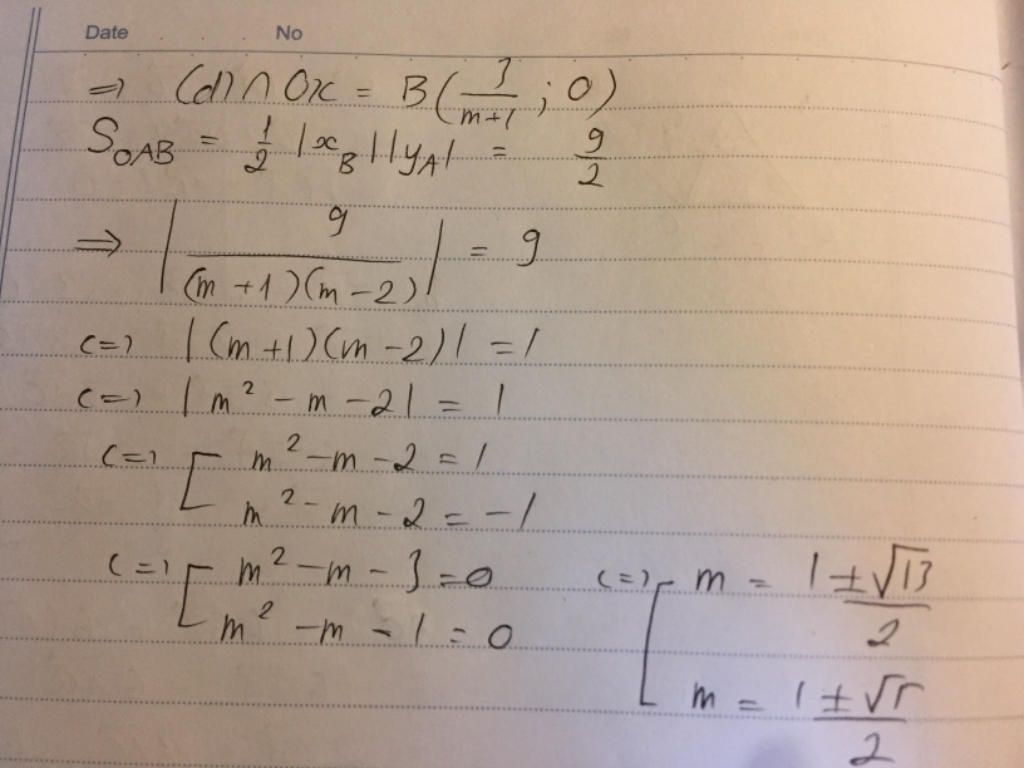 Date . . . No
⇒ (d) ∩ Ox = B(3/(m+1) ; 0)
S_OAB = 1/2 |x_B||y_A| = 9/2
⇒ |9/((m+1)(m-2))| = 9
<=> |(m+1)(m-2)| = 1
<=> |m² - m - 2| = 1
<=> [ m² - m - 2 = 1
m² - m - 2 = -1
<=> [ m² - m - 3 = 0
m² - m - 1 = 0
<=> [ m = (1 ± √13)/2
m = (1 ± √5)/2